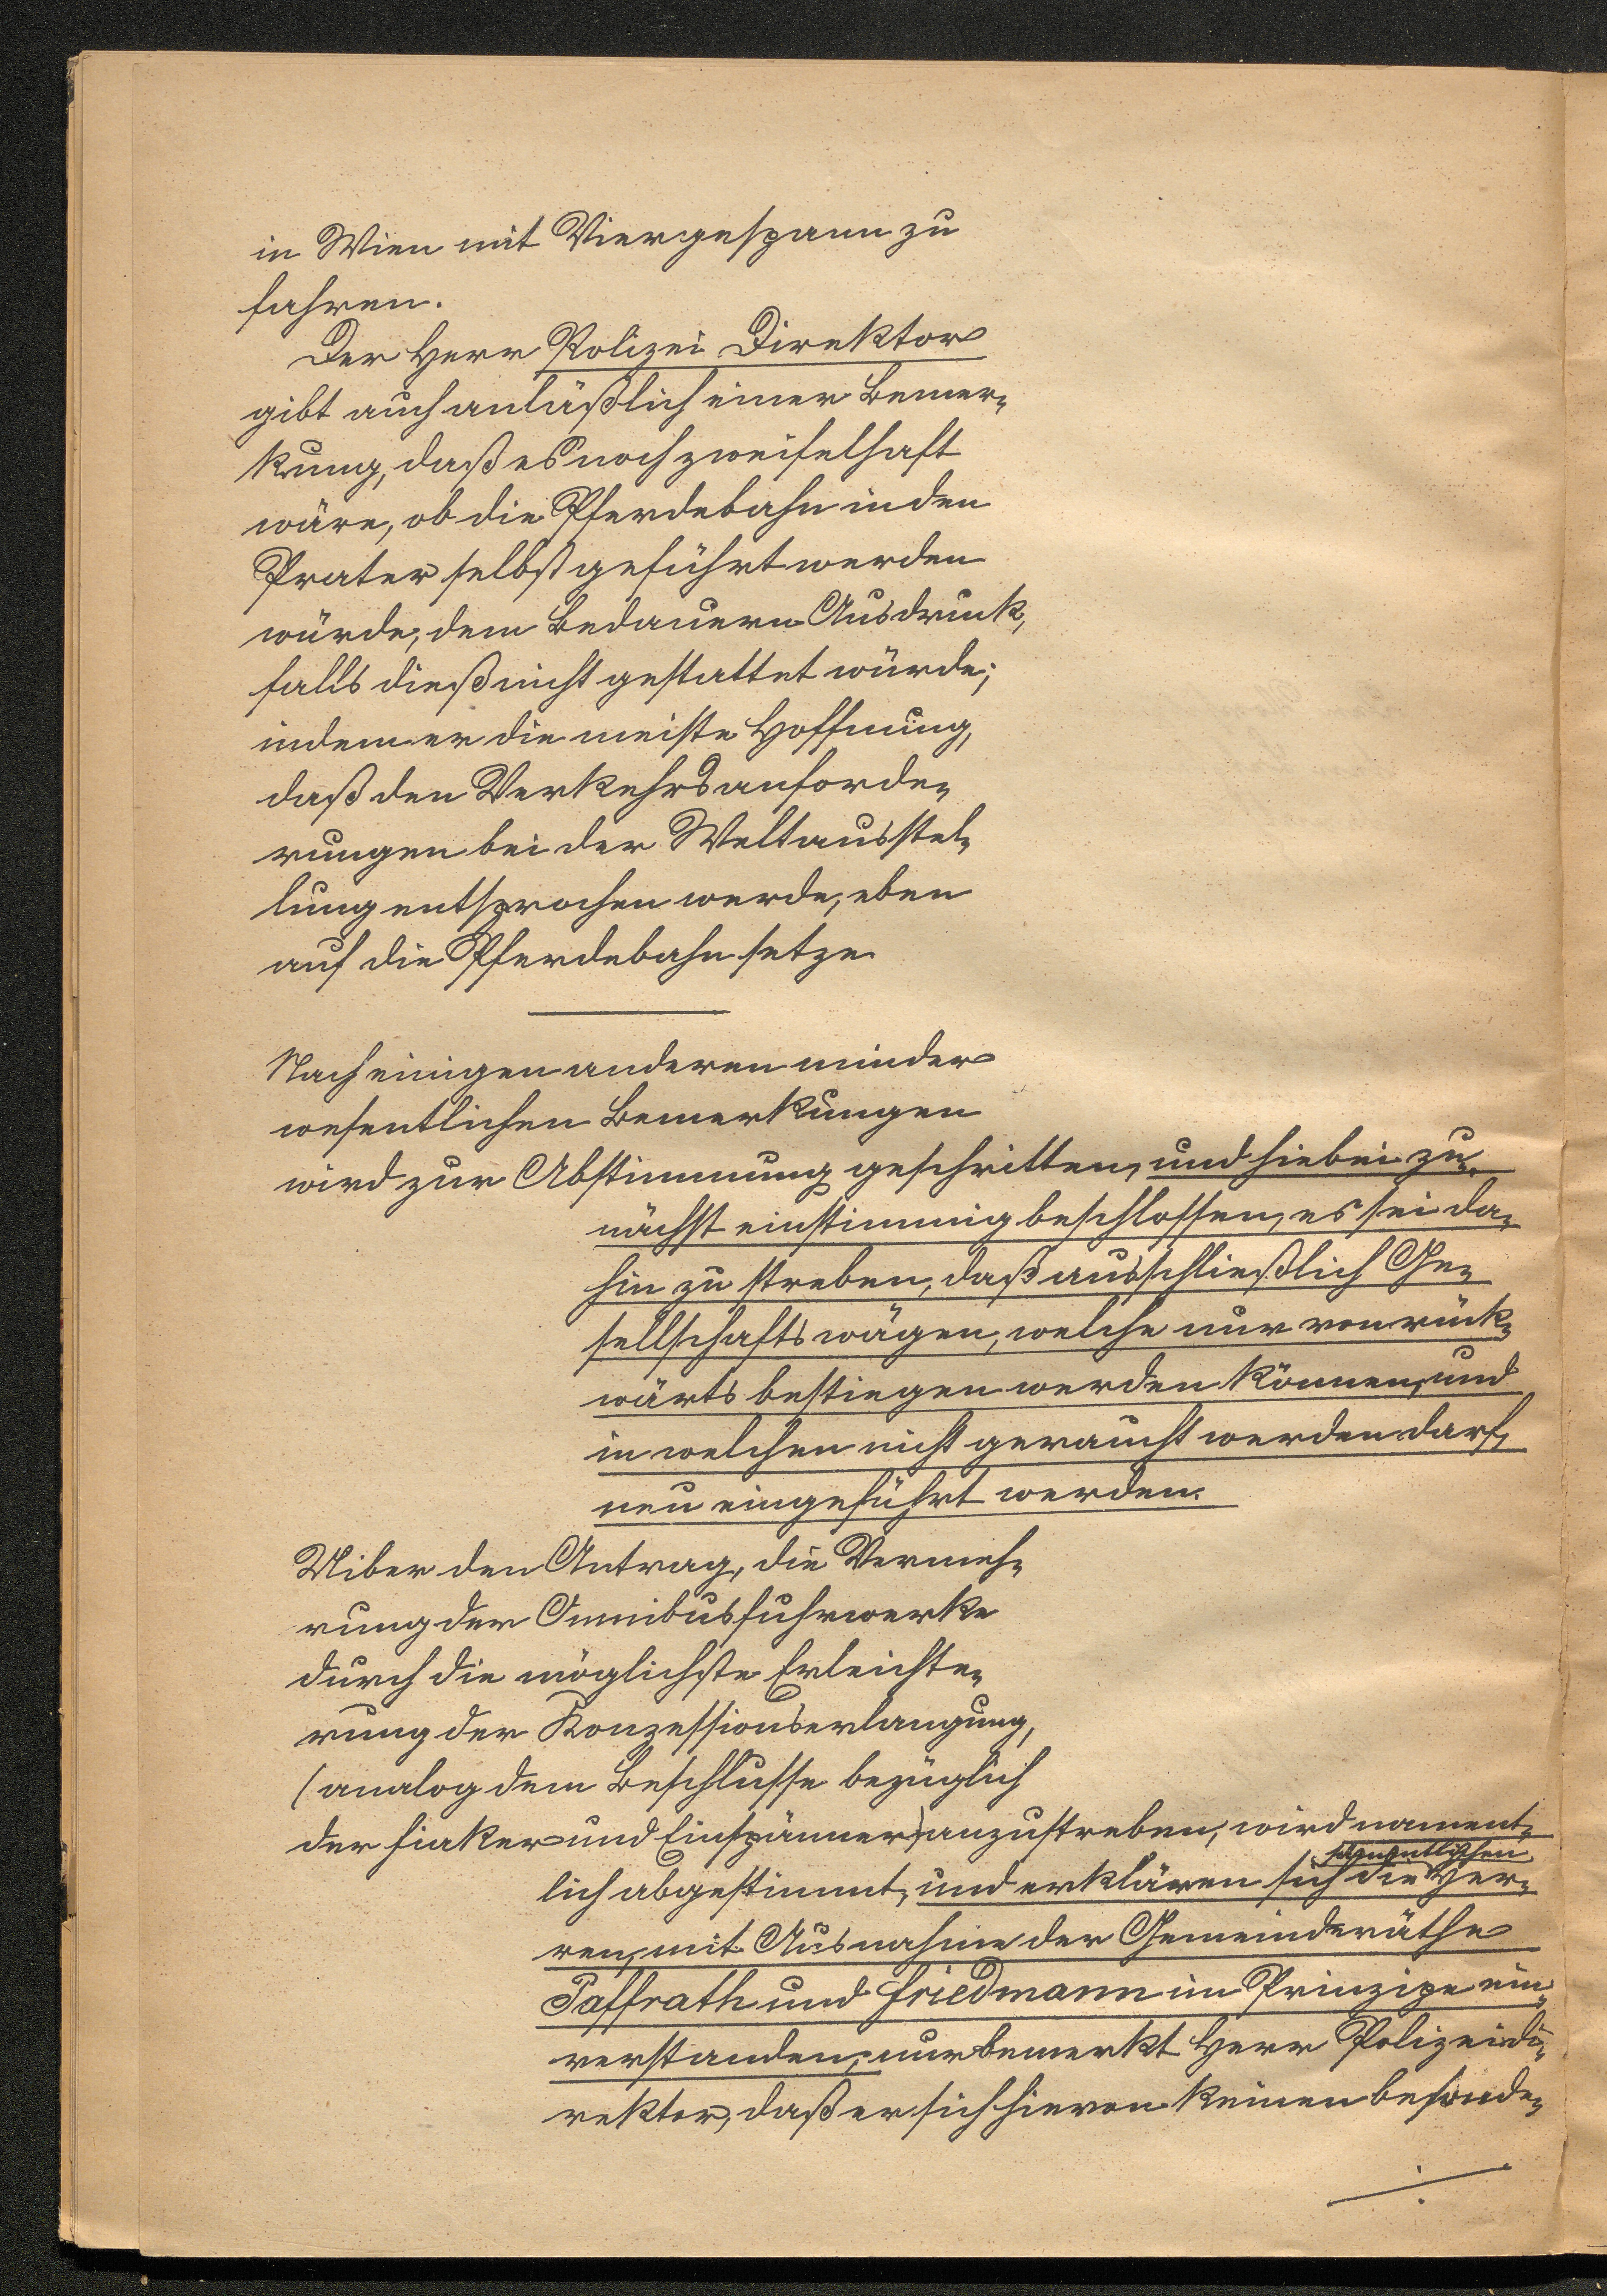 in Wien mit Viergespann zu
fahren.
Der Herr Polizei Direktor
gibt auch anläßlich einer Bemer-
kung, daß es noch zweifelhaft
wäre, ob die Pferdebahn in den
Prater selbst geführt werden
würde, dem Bedauern Ausdruck,
falls dieß nicht gestattet würde;
indem er die meiste Hoffnung,
daß den Verkehrsanforde-
rungen bei der Weltausstel-
lung entsprochen werde, eben
auf die Pferdebahn setze.
Nach einigen anderen minder
wesentlichen Bemerkungen
wird zur Abstimmung geschritten, und hiebei zu-
nächst einstimmig beschlossen, es sei da-
hin zu streben, daß ausschließlich Ge-
sellschaftswägen, welche nur von rück-
wärts bestiegen werden können, und
in welchen nicht geraucht werden darf,
neu eingeführt werden.
Uiber den Antrag, die Vermeh-
rung der Omnibusfuhrwerke
durch die möglichste Erleichte-
rung der Konzessionserlangung,
(analog dem Beschlusse bezüglich
der Fiaker und Einspänner) anzustreben, wird nament-
lich abgestimmt, und erklären sich die sämmtlichen Her-
ren, mit Ausnahme der Gemeinderäthe
Paffrath und Friedmann im Prinzipe ein-
verstanden; nur bemerkt Herr Polizeidi-
rektor, daß er sich hievon keinen besonde-
./.